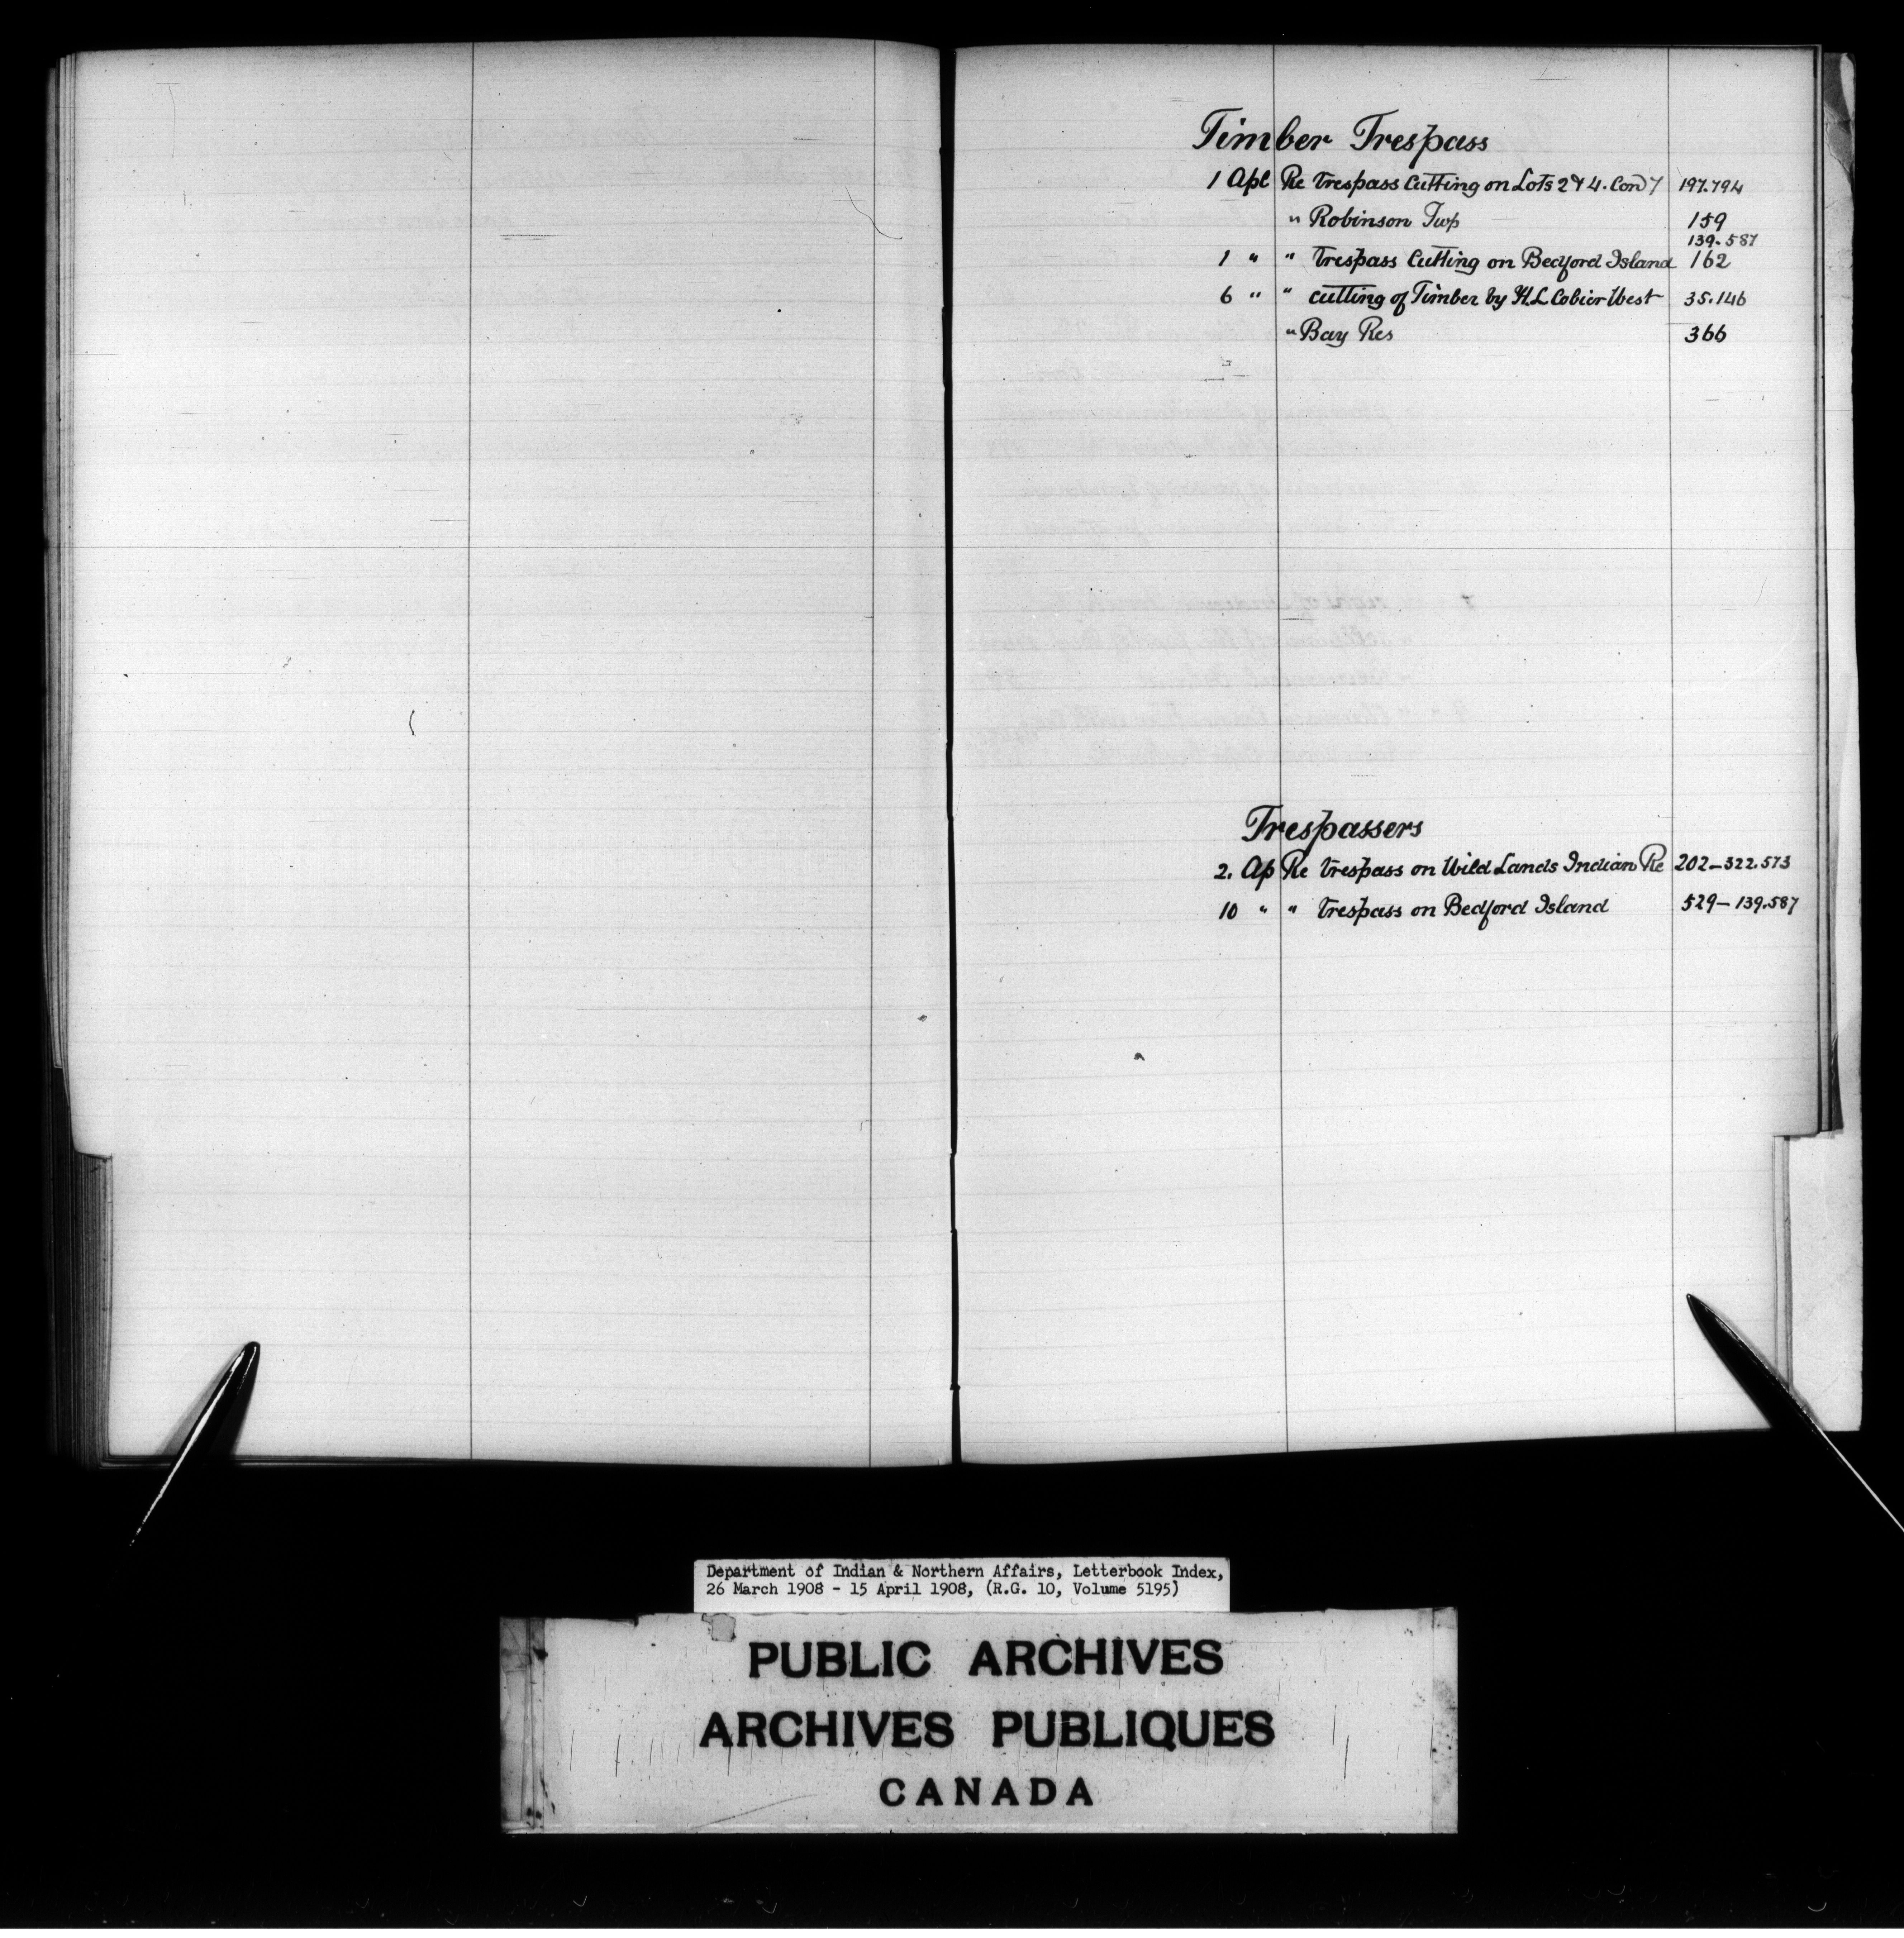 Timber Trespass
1 Apl Re trespass cutting on Lots 2 & 4. Con 7 197.794
" Robinson Twp 159
139.587
1 " " trespass cutting on Bedford Island 162
6 " " cutting of Timber by H.L. West 35.146
" Bay Res 366
Trespassers
2. Ap Re trespass on Wild Lands Indian Re 202-322.573
10 " " trespass on Bedford Island 529-139.587
Department of Indian & Northern Affairs, Letterbook Index,
26 March 1908 - 15 April 1908, (R.G. 10, Volume 5195)
PUBLIC ARCHIVES
ARCHIVES PUBLIQUES
CANADA